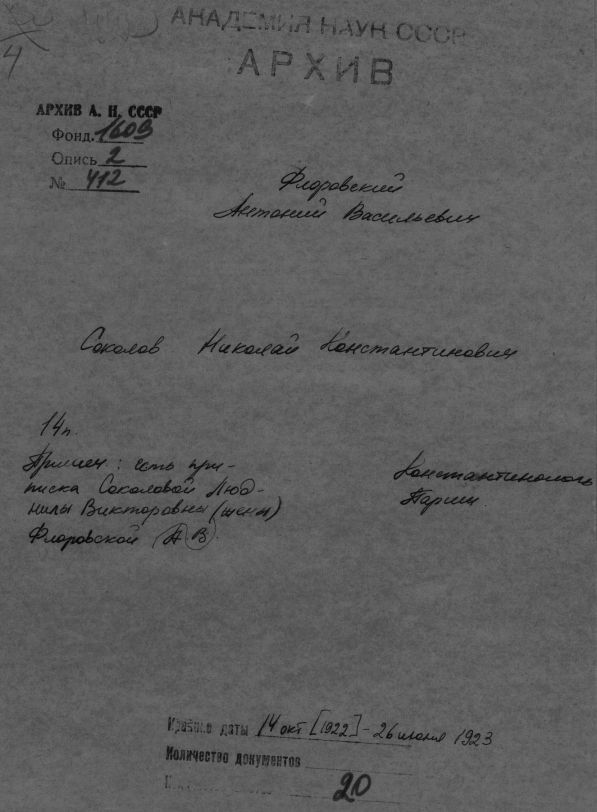 4
АКАДЕМИЯ НАУК СССР
АРХИВ
АРХИВ А. Н. СССР
Фонд. 1609
Опись 2
№ 412
Флоровский
Антоний Васильевич
Соколов Николай Константинович
14 п.
Примеч: есть при-
писка Соколовой Люд-
милы Викторовны (жены)
Флоровской А В.
Константинополь
Париж
Крайние даты 14 окт. [1922] - 26 июня 1923
Количество документов
20